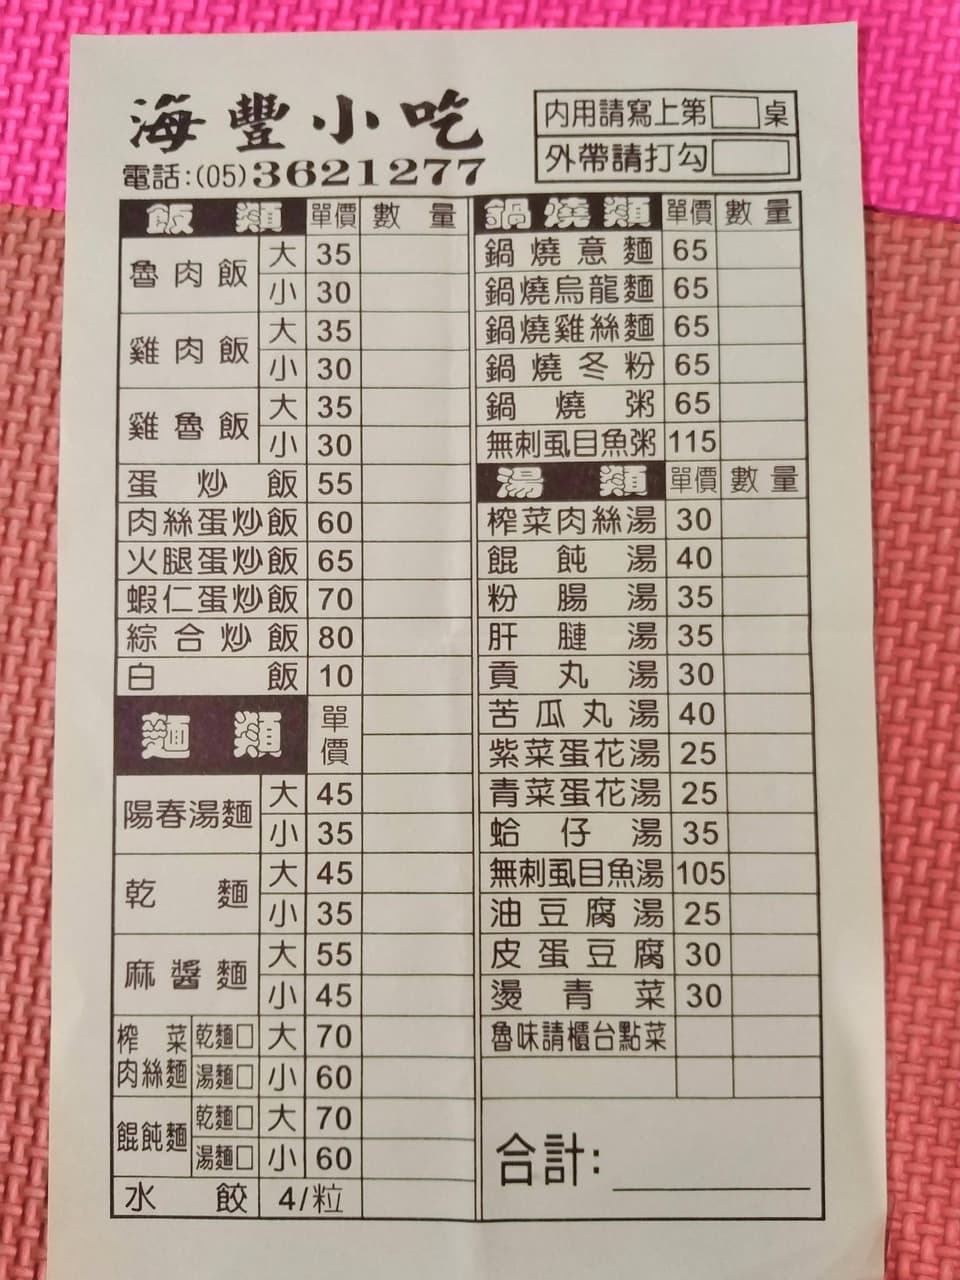 海豐小吃
電話:(05)3621277
內用請寫上第 桌
外帶請打勾
飯類 單價 數量
魯肉飯 大 35
小 30
雞肉飯 大 35
小 30
雞魯飯 大 35
小 30
蛋炒飯 55
肉絲蛋炒飯 60
火腿蛋炒飯 65
蝦仁蛋炒飯 70
綜合炒飯 80
白飯 10
麵類 單價
陽春湯麵 大 45
小 35
乾麵 大 45
小 35
麻醬麵 大 55
小 45
榨菜肉絲麵 乾麵□ 大 70
湯麵□ 小 60
餛飩麵 乾麵□ 大 70
湯麵□ 小 60
水餃 4/粒
鍋燒類 單價 數量
鍋燒意麵 65
鍋燒烏龍麵 65
鍋燒雞絲麵 65
鍋燒冬粉 65
鍋燒粥 65
無刺虱目魚粥 115
湯類 單價 數量
榨菜肉絲湯 30
餛飩湯 40
粉腸湯 35
肝膁湯 35
貢丸湯 30
苦瓜丸湯 40
紫菜蛋花湯 25
青菜蛋花湯 25
蛤仔湯 35
無刺虱目魚湯 105
油豆腐湯 25
皮蛋豆腐 30
燙青菜 30
魯味請櫃台點菜
合計: